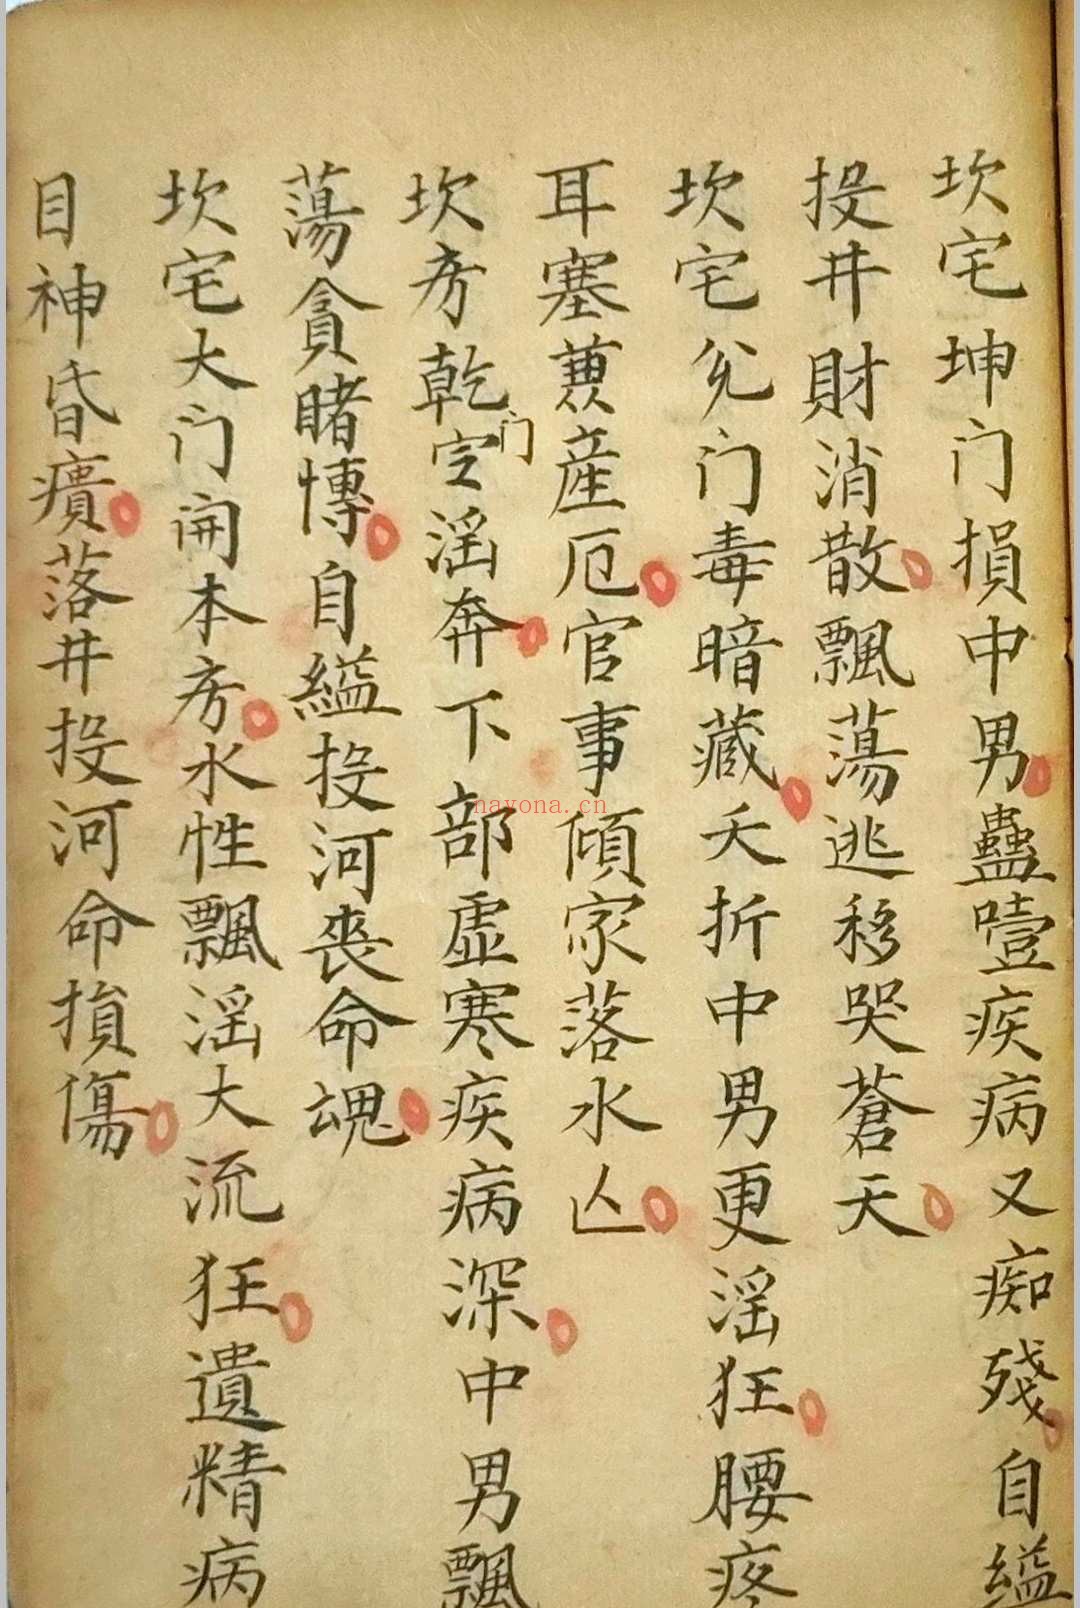 坎宅坤门損中男蠱噎疾病又痴殘自縊
投井財消散飄蕩逃移哭蒼天
坎宅兑门毒暗藏夭折中男更淫狂腰疼
耳塞蔥産厄官事傾家落水亾
坎房乾门淫奔下部虛寒疾病深中男飄
蕩貪賭博自縊投河喪命魂
坎宅大门開本房水性飄淫大流狂遺精病
目神昏癀落井投河命損傷
nayona.cn